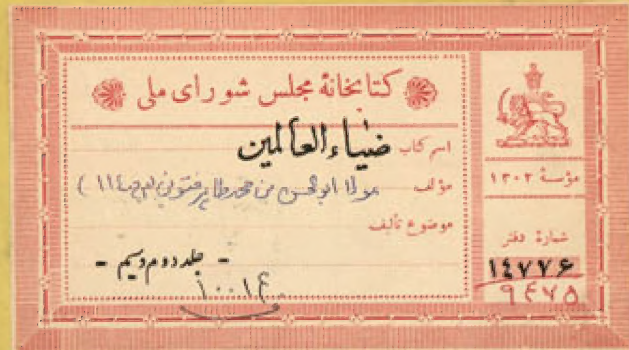 کتابخانهٔ مجلس شورای ملی
اسم کتاب ضیاء العالمین
مؤلف مولا ابوالحسن بن محمد طاهر فتونی
موضوع تألیف
- جلد دوم و سیم -
۱۰۰۱۴
مؤسسهٔ ۱۳۰۲
شمارهٔ دفتر
۱٤۷۷۶
۹۴۷۵